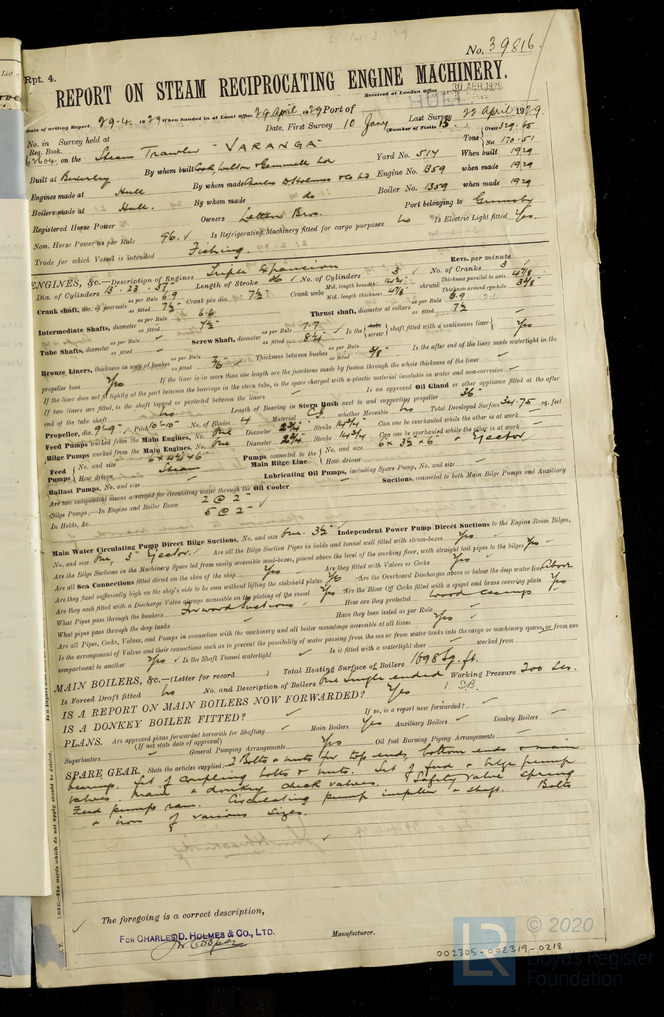 List
Rpt. 4.
No. 39816.
REPORT ON STEAM RECIPROCATING ENGINE MACHINERY.
Received at London Office 30 APR 1929
Date of writing Report 29.4.1929 When handed in at Local Office 29 April 1929 Port of HULL
No. in Survey held at Date, First Survey 10 Jany Last Survey 22 April 1929
Reg. Book. (Number of Visits 15)
on the Steam Trawler "VARANGA" Tons Gross 329.65 Net 170.51
Built at Beverley By whom built Cook, Welton & Gemmell Ld Yard No. 514 When built 1929
Engines made at Hull By whom made Charles D. Holmes & Co Ld Engine No. 1359 when made 1929
Boilers made at Hull. By whom made do Boiler No. 1359 when made 1929
Registered Horse Power Owners Letten Bros. Port belonging to Grimsby
Nom. Horse Power as per Rule 96. Is Refrigerating Machinery fitted for cargo purposes no Is Electric Light fitted Yes.
Trade for which Vessel is intended Fishing.
ENGINES, &c.—Description of Engines Triple Expansion Revs. per minute
Dia. of Cylinders 13"-23"-37" Length of Stroke 26 No. of Cylinders 3 No. of Cranks 3
Crank shaft, dia. of journals as per Rule 6.9 as fitted 7½" Crank pin dia. 7½" Crank webs Mid. length breadth Mid. length thickness 4⅞" shrunk Thickness parallel to axis 4⅞" Thickness around eye-hole
Intermediate Shafts, diameter as per Rule 6.6 as fitted 7½" Thrust shaft, diameter at collars as per Rule 6.9 as fitted 7½
Tube Shafts, diameter as per Rule as fitted Screw Shaft, diameter as per Rule 7.7 as fitted 8¼ Is the screw shaft fitted with a continuous liner Yes
Bronze Liners, thickness in way of bushes as per Rule as fitted Thickness between bushes as per Rule as fitted Is the after end of the liner made watertight in the
propeller boss Yes If the liner is in more than one length are the junctions made by fusion through the whole length of the liner
If the liner does not fit tightly at the part between the bearings in the stern tube, is the space charged with a plastic material insoluble in water and non-corrosive
If two liners are fitted, is the shaft lapped or protected between the liners Is an approved Oil Gland or other appliance fitted at the after
end of the tube shaft no Length of Bearing in Stern Bush next to and supporting propeller 36"
Propeller, dia. 9'-9" Pitch 10'-10" No. of Blades 4 Material C.I. whether Moveable no Total Developed Surface 34.75 sq. feet
Feed Pumps worked from the Main Engines, No. One Diameter 2¾" Stroke 14¾" Can one be overhauled while the other is at work
Bilge Pumps worked from the Main Engines, No. One Diameter 2¾" Stroke 14¾" Can one be overhauled while the other is at work
Feed Pumps No. and size How driven Steam Pumps connected to the Main Bilge Line No. and size 6 x 3½ x 6 & Ejector How driven
Ballast Pumps, No. and size Lubricating Oil Pumps, including Spare Pump, No. and size
Are two independent means arranged for circulating water through the Oil Cooler Suctions, connected to both Main Bilge Pumps and Auxiliary
Bilge Pumps;—In Engine and Boiler Room 2 @ 2"
In Holds, &c. 5 @ 2"
Main Water Circulating Pump Direct Bilge Suctions, No. and size One. 3½ Independent Power Pump Direct Suctions to the Engine Room Bilges,
No. and size One, 3" Ejector Are all the Bilge Suction Pipes in holds and tunnel well fitted with strum-boxes Yes
Are the Bilge Suctions in the Machinery Space led from easily accessible mud-boxes, placed above the level of the working floor, with straight tail pipes to the bilges Yes
Are all Sea Connections fitted direct on the skin of the ship Yes Are they fitted with Valves or Cocks Yes
Are they fixed sufficiently high on the ship's side to be seen without lifting the stokehold plates Yes Are the Overboard Discharges above or below the deep water line Above
Are they each fitted with a Discharge Valve always accessible on the plating of the vessel Yes Are the Blow Off Cocks fitted with a spigot and brass covering plate Yes
What Pipes pass through the bunkers Forward Suctions How are they protected Wood casings
What pipes pass through the deep tanks Have they been tested as per Rule
Are all Pipes, Cocks, Valves, and Pumps in connection with the machinery and all boiler mountings accessible at all times Yes
Is the arrangement of Valves and their connections such as to prevent the possibility of water passing from the sea or from water tanks into the cargo or machinery spaces, or from one
compartment to another Yes Is the Shaft Tunnel watertight Is it fitted with a watertight door worked from
MAIN BOILERS, &c.—(Letter for record ) Total Heating Surface of Boilers 1698 Sq. ft.
Is Forced Draft fitted no No. and Description of Boilers One single ended Working Pressure 200 lbs.
IS A REPORT ON MAIN BOILERS NOW FORWARDED? Yes 1 S.B.
IS A DONKEY BOILER FITTED? If so, is a report now forwarded?
PLANS. Are approved plans forwarded herewith for Shafting Main Boilers Yes Auxiliary Boilers Donkey Boilers
(If not state date of approval)
Superheaters General Pumping Arrangements Yes Oil fuel Burning Piping Arrangements
SPARE GEAR. State the articles supplied:— 2 Bolts & nuts for top ends, bottom ends & main
bearings. Set of coupling bolts & nuts. Set of feed & bilge pump
valves. Main & donkey check valves. Safety valve spring
Feed pump ram. Circulating pump impeller & shaft. Bolts
& iron of various sizes.
The foregoing is a correct description,
FOR CHARLES D. HOLMES & CO., LTD.
Manufacturer.
002305-002319-0218
© 2020
LR
Lloyd's Register
Foundation